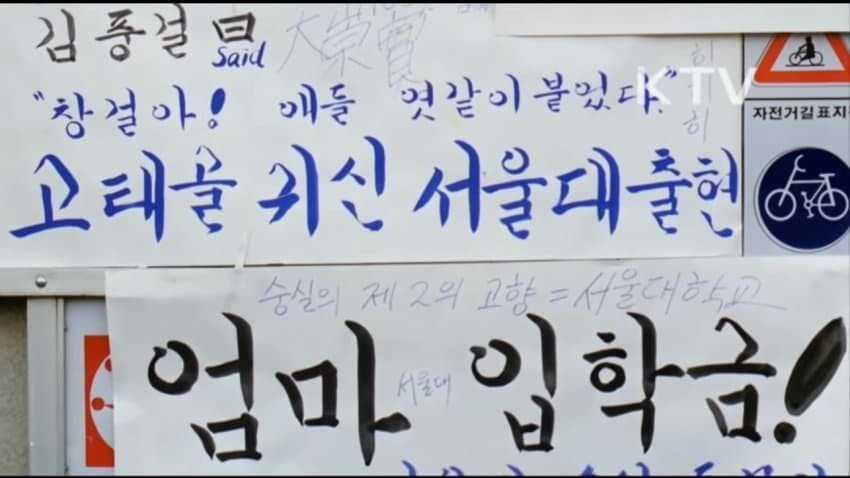 김종걸 曰 大崇實
Said
"창걸아! 애들 엿같이 붙었다."
히히히
KTV
고태골 귀신 서울대출현
자전거길표지
숭실의 제2의 고향=서울대학교
엄마 입학금!
서울대